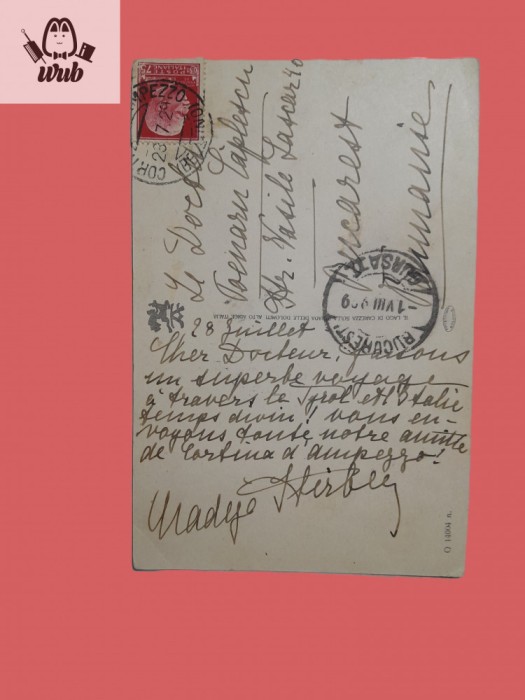 wub
POSTE ITALIANE
28 7 29
Le Docteur
Poenaru Căplescu
Str. Vasile Lascar 40
Bucarest
Roumanie
BUCUREST
1 VIII 929
IL LAGO DI CAREZZA SULLA STRADA DELLE DOLOMITI, ALTO ADIGE, ITALIA
28 Juillet
Cher Docteur, faisons
un superbe voyage
à travers le Tyrol et l'Italie
temps divin! vous en-
voyons toute notre amitié
de Cortina d'Ampezzo!
Stirbey
Q 14604 n.